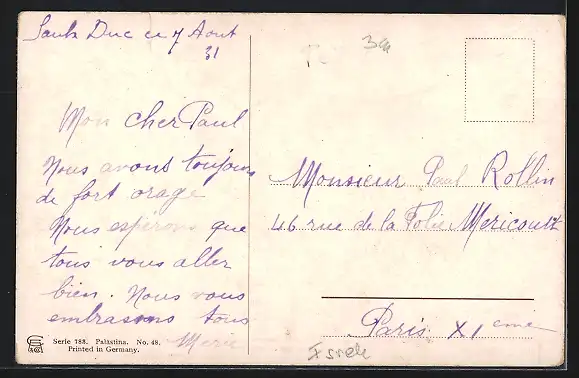 Saulx Duc ce 7 Aout
31
Mon cher Paul
Nous avons toujours
de fort orage
Nous espérons que
tous vous aller
bien. Nous vous
embrassons tous
Monsieur Paul Rollin
46 rue de la Folie Mericourt
Paris XI eme
Israel
Serie 188. Palästina. No. 48.
Printed in Germany.